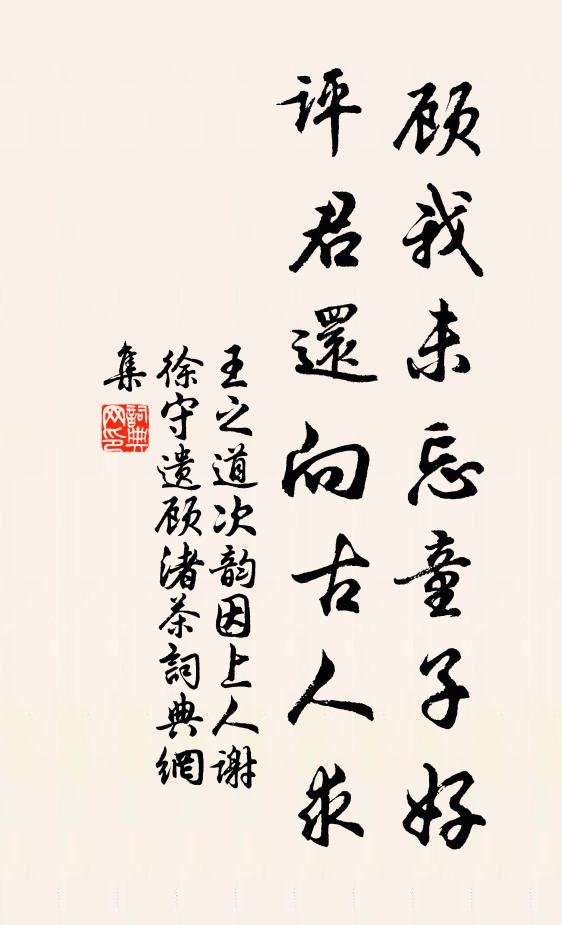 顾我未忘童子好
评君還向古人求
王之道次韵因上人谢
徐守遗顾渚茶詞典網
集
詞典网印